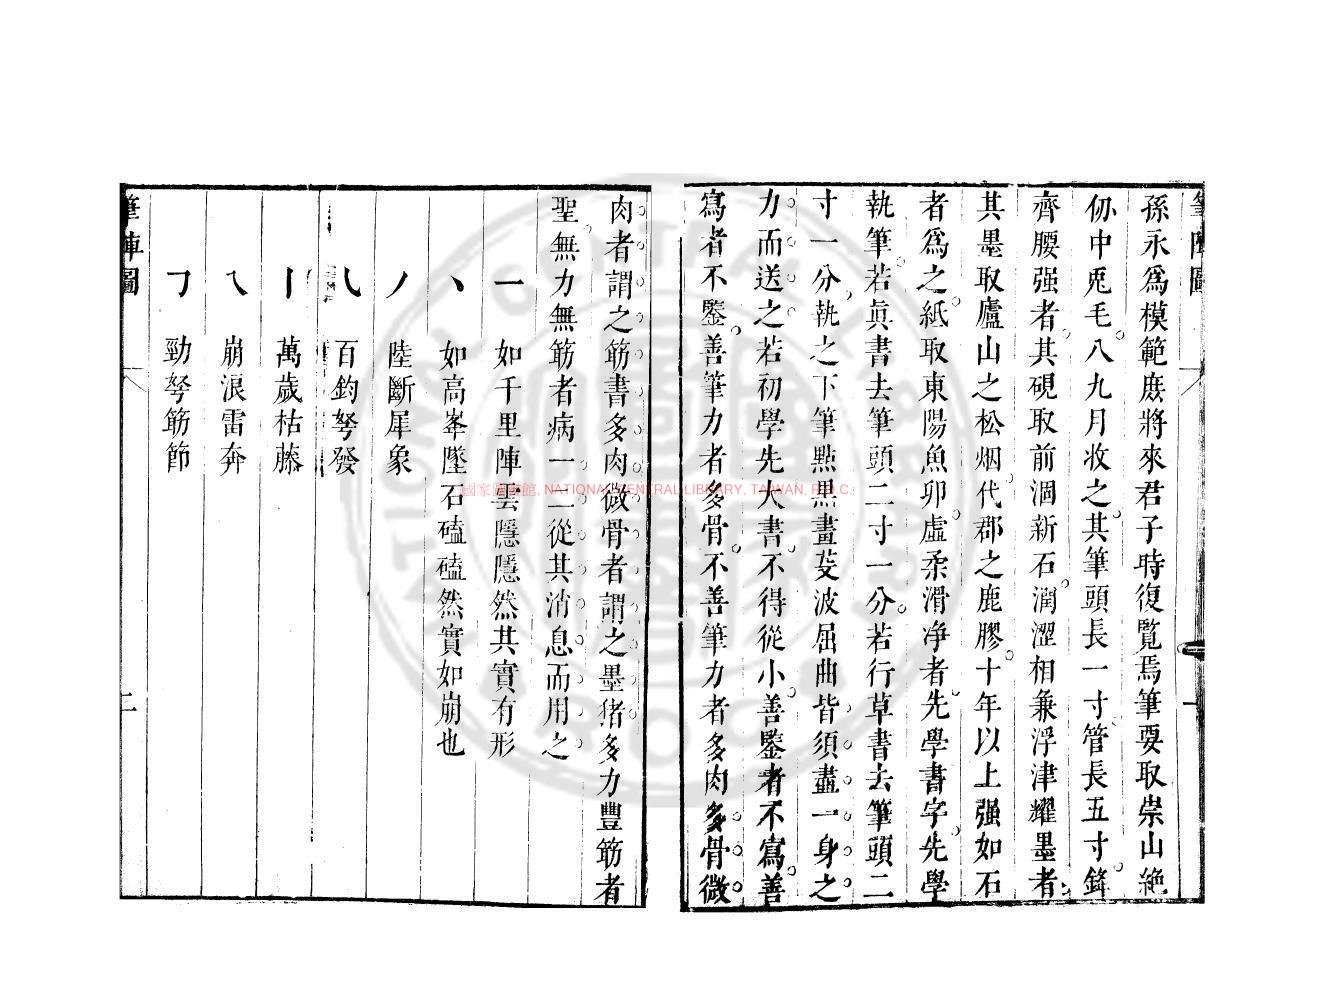 筆陣圖
孫永爲模範庶將來君子時復覽焉筆要取崇山絶
仞中兎毛八九月收之其筆頭長一寸管長五寸鋒
齊腰强者其硯取前涸新石潤澀相兼浮津耀墨者
其墨取廬山之松烟代郡之鹿膠十年以上强如石
者爲之紙取東陽魚卵虛柔滑净者先學書字先學
執筆若眞書去筆頭二寸一分若行草書去筆頭二
寸一分執之下筆點畫芟波屈曲皆須盡一身之
力而送之若初學先大書不得從小善鑒者不寫善
寫者不鑒善筆力者多骨不善筆力者多肉多骨微
肉者謂之筋書多肉微骨者謂之墨猪多力豐筋者
聖無力無筋者病一一從其消息而用之
一 如千里陣雲隱隱然其實有形
丶 如高峯墜石磕磕然實如崩也
丿 陸斷犀象
乀 百鈞弩發
丨 萬歲枯藤
乀 崩浪雷奔
㇆ 勁弩筋節
筆陣圖 二
國家圖書館, NATIONAL CENTRAL LIBRARY, TAIWAN, R.O.C.